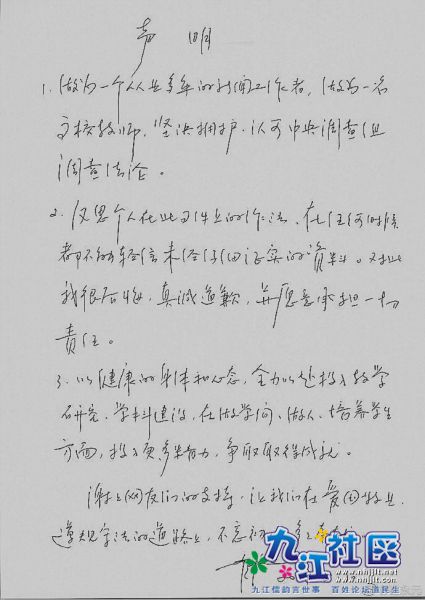 声 明
1. 做为一个从业多年的新闻工作者, 做为一名
高校教师, 坚决拥护、认可中央调查组
调查结论。
2. 反思个人在此事件上的作法、在任何时候
都不能轻信未经仔细证实的资料。对此
我很后悔, 真诚道歉, 并愿意承担一切
责任。
3. 以健康的身体和心态, 全力以赴投入教学
研究、学科建设, 在做学问、做人、培养学生
方面, 投入更多精力, 争取取得成就。
谢谢网友们的支持, 让我们在爱国敬业
遵规守法的道路上, 不忘初
九江社区
www.nnjjlt.net
www.nnjjlt.net
九江儒韵言世事 百姓论坛道民生